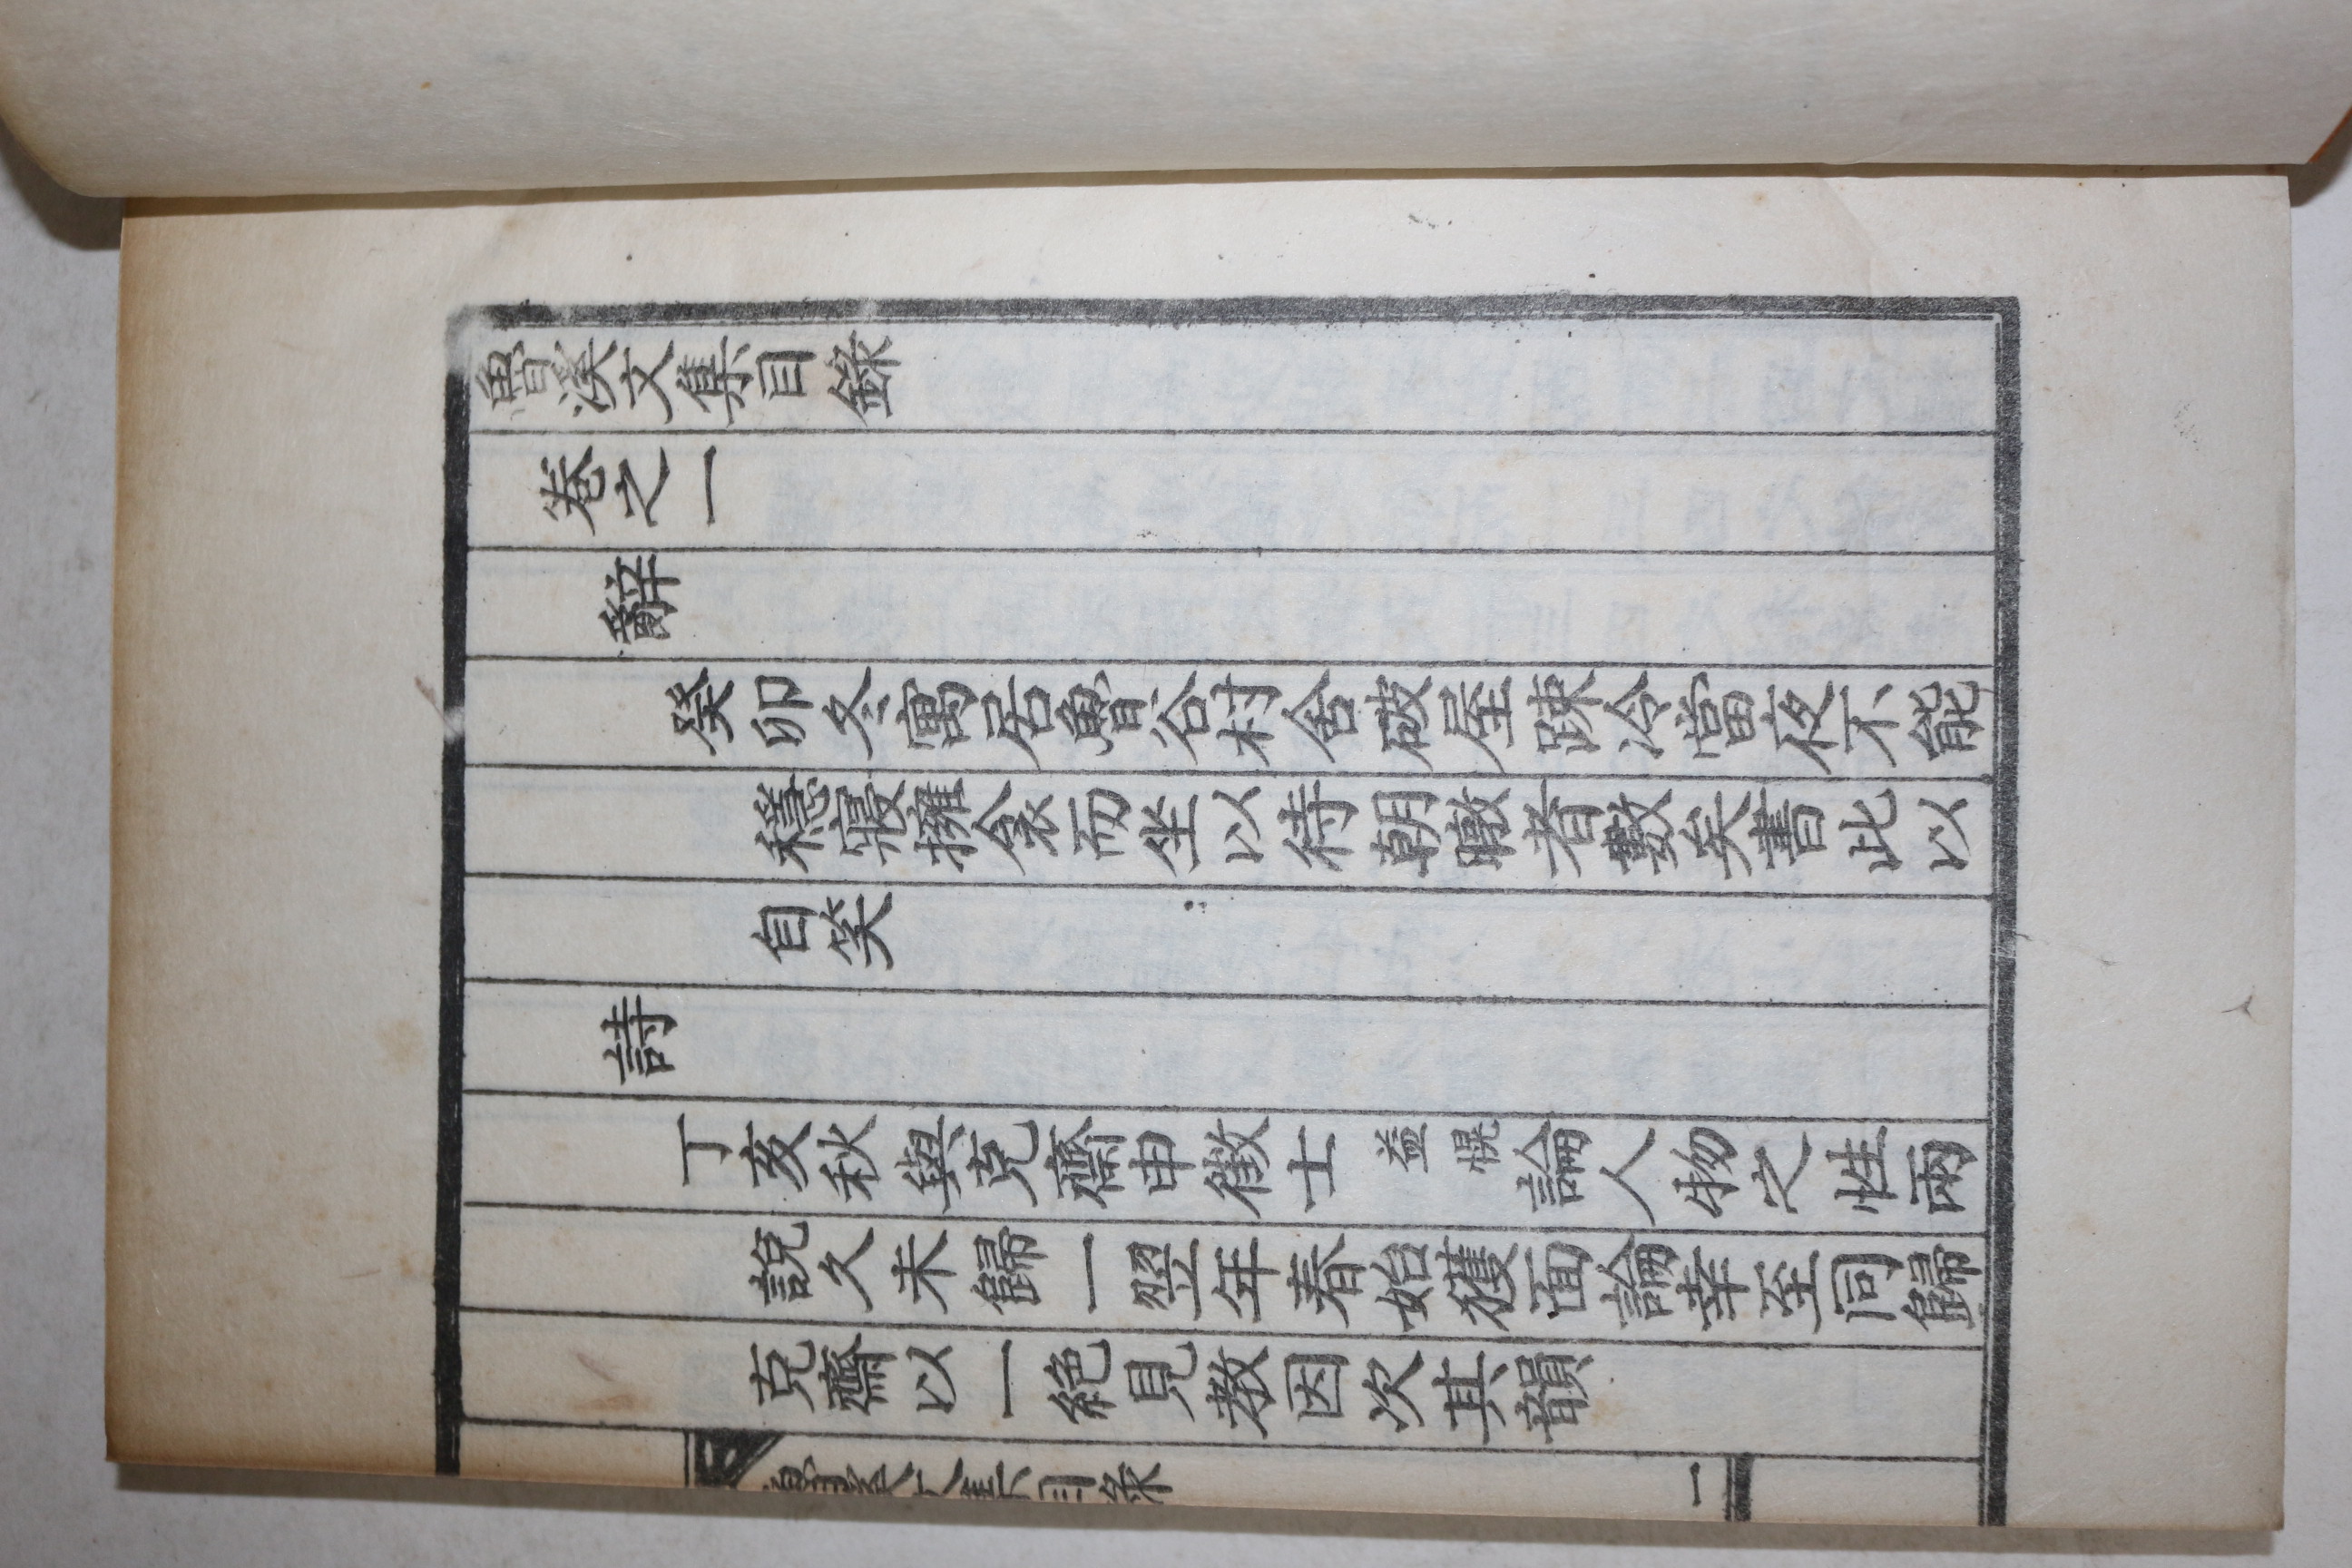 魯溪文集目錄
卷之一
辭
癸卯冬寓居魯谷村舍破屋踈冷當夜不能
穩寢擁衾而坐以待朝暾者數矣書此以
自笑
詩
丁亥秋與克齋申徵士益愰論人物之性兩
說久未歸一翌年春始獲面論幸至同歸
克齋以一絕見教因次其韻
魯溪文集目錄 一